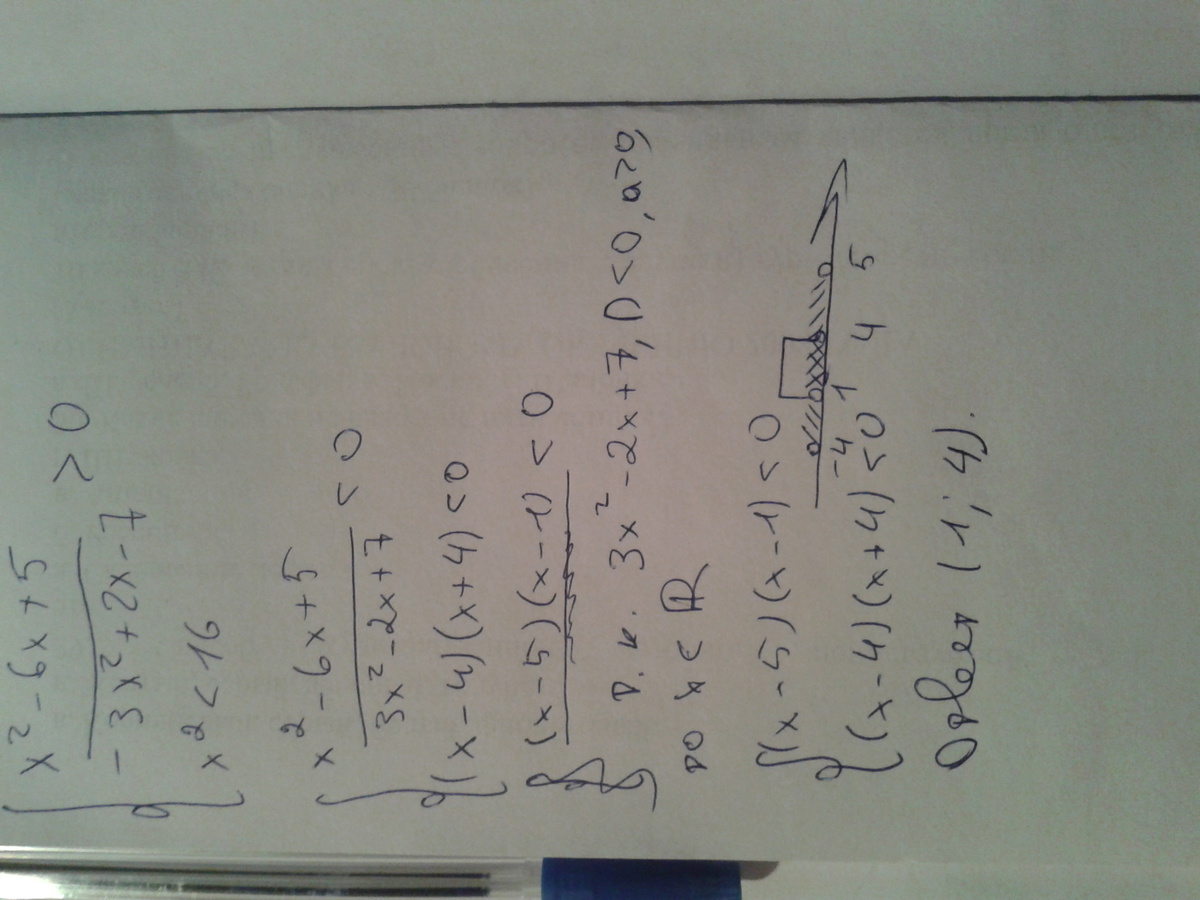 x² - 6x + 5
-3x² + 2x - 7 > 0
x² < 16
x² - 6x + 5
3x² - 2x + 7 < 0
(x - 4)(x + 4) < 0
(x - 5)(x - 1) < 0
т. к. 3x² - 2x + 7, D < 0, a > 0,
то x ∈ ℝ
(x - 5)(x - 1) < 0
(x - 4)(x + 4) < 0
-4 1 4 5
Ответ (1; 4).